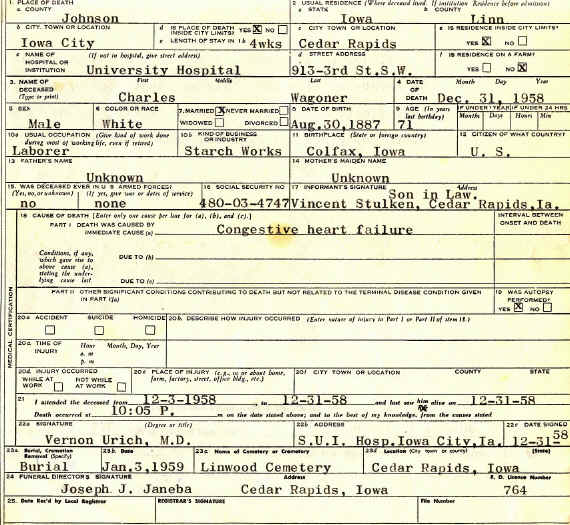 1. PLACE OF DEATH
a. COUNTY
Johnson
2. USUAL RESIDENCE (Where deceased lived. If institution Residence before admission)
a. STATE Iowa b. COUNTY Linn
b. CITY, TOWN OR LOCATION
Iowa City
d. IS PLACE OF DEATH INSIDE CITY LIMITS? YES X NO
c. LENGTH OF STAY IN 1b 4wks
c. CITY, TOWN OR LOCATION
Cedar Rapids
e. IS RESIDENCE INSIDE CITY LIMITS?
YES X NO
NAME OF HOSPITAL OR INSTITUTION (If not in hospital, give street address)
University Hospital
d. STREET ADDRESS
913-3rd St.S.W.
f. IS RESIDENCE ON A FARM?
YES NO X
3. NAME OF DECEASED (Type or print)
First Middle Last
Charles Wagoner
4. DATE OF DEATH
Month Day Year
Dec. 31, 1958
5. SEX
Male
6. COLOR OR RACE
White
7. MARRIED X NEVER MARRIED
WIDOWED DIVORCED
8. DATE OF BIRTH
Aug.30,1887
9. AGE (In years last birthday)
71
IF UNDER 1 YEAR IF UNDER 24 HRS
Months Days Hours Min
10a. USUAL OCCUPATION (Give kind of work done during most of working life, even if retired)
Laborer
10b. KIND OF BUSINESS OR INDUSTRY
Starch Works
11. BIRTHPLACE (State or foreign country)
Colfax, Iowa
12. CITIZEN OF WHAT COUNTRY?
U. S.
13. FATHER'S NAME
Unknown
14. MOTHER'S MAIDEN NAME
Unknown
15. WAS DECEASED EVER IN U. S. ARMED FORCES?
(Yes, no, or unknown) (If yes, give war or dates of service)
no none
16. SOCIAL SECURITY NO
480-03-4747
17. INFORMANT'S SIGNATURE Address
Son in Law.
Vincent Stulken, Cedar Rapids,Ia.
18. CAUSE OF DEATH [Enter only one cause per line for (a), (b), and (c).]
INTERVAL BETWEEN ONSET AND DEATH
PART I DEATH WAS CAUSED BY
IMMEDIATE CAUSE (a) Congestive heart failure
Conditions, if any, which gave rise to above cause (a), stating the underlying cause last
DUE TO (b)
DUE TO (c)
MEDICAL CERTIFICATION
PART II OTHER SIGNIFICANT CONDITIONS CONTRIBUTING TO DEATH BUT NOT RELATED TO THE TERMINAL DISEASE CONDITION GIVEN IN PART I(a)
19. WAS AUTOPSY PERFORMED?
YES X NO
20a. ACCIDENT SUICIDE HOMICIDE
20b. DESCRIBE HOW INJURY OCCURRED (Enter nature of injury in Part I or Part II of item 18.)
TIME OF INJURY Hour Month, Day, Year
a. m.
p. m.
20d. INJURY OCCURRED
WHILE AT WORK NOT WHILE AT WORK
20e. PLACE OF INJURY (e.g., in or about home, farm, factory, street, office bldg., etc.)
20f. CITY TOWN, OR LOCATION COUNTY STATE
21 I attended the deceased from 12-3-1958, to 12-31-58 and last saw him alive on 12-31-58
Death occurred at 10:05 P. m on the date stated above; and to the best of my knowledge, from the causes stated
22a. SIGNATURE (Degree or title)
Vernon Urich, M.D.
22b. ADDRESS
S.U.I. Hosp.Iowa City,Ia.
22c. DATE SIGNED
12-31-58
23a. Burial, Cremation Removal (Specify)
Burial
23b. DATE
Jan.3,1959
23c. Name of Cemetery or Crematory
Linwood Cemetery
23d. Location (City town or county) (State)
Cedar Rapids, Iowa
24. FUNERAL DIRECTOR'S SIGNATURE Address F. D. Licence Number
Joseph J. Janeba Cedar Rapids, Iowa 764
25. Date Rec'd by Local Registrar REGISTRAR'S SIGNATURE File Number